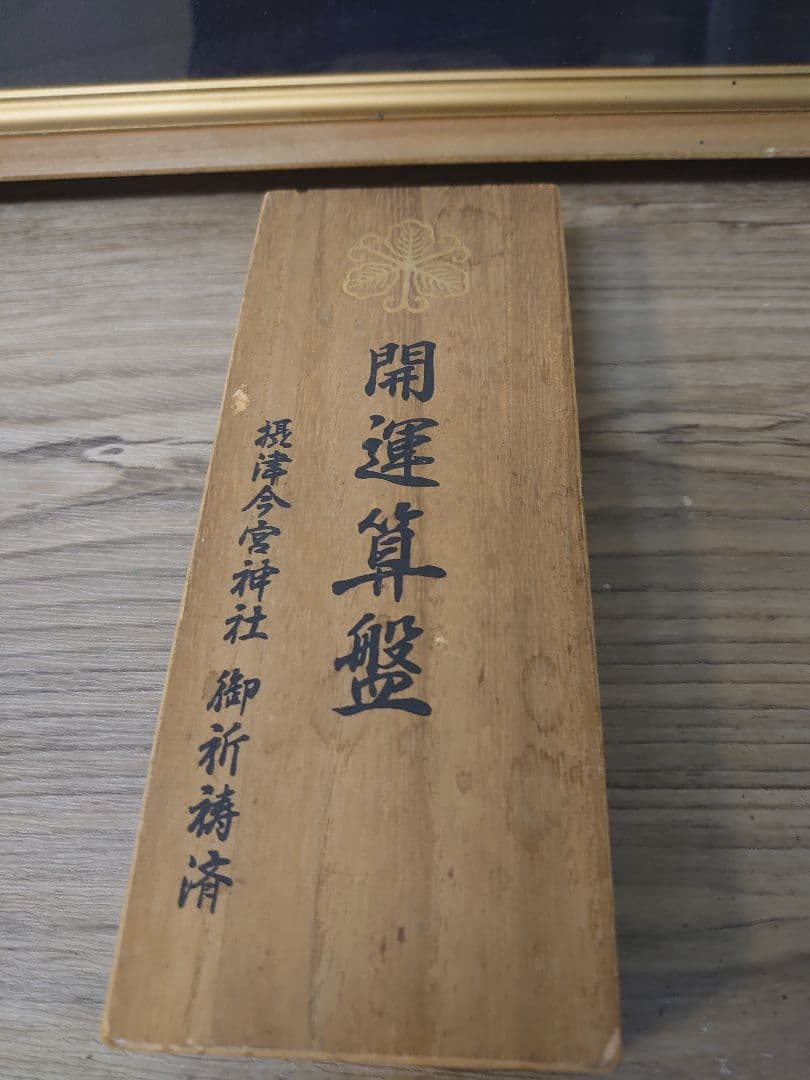 開運算盤
摂津今宮神社 御祈祷済